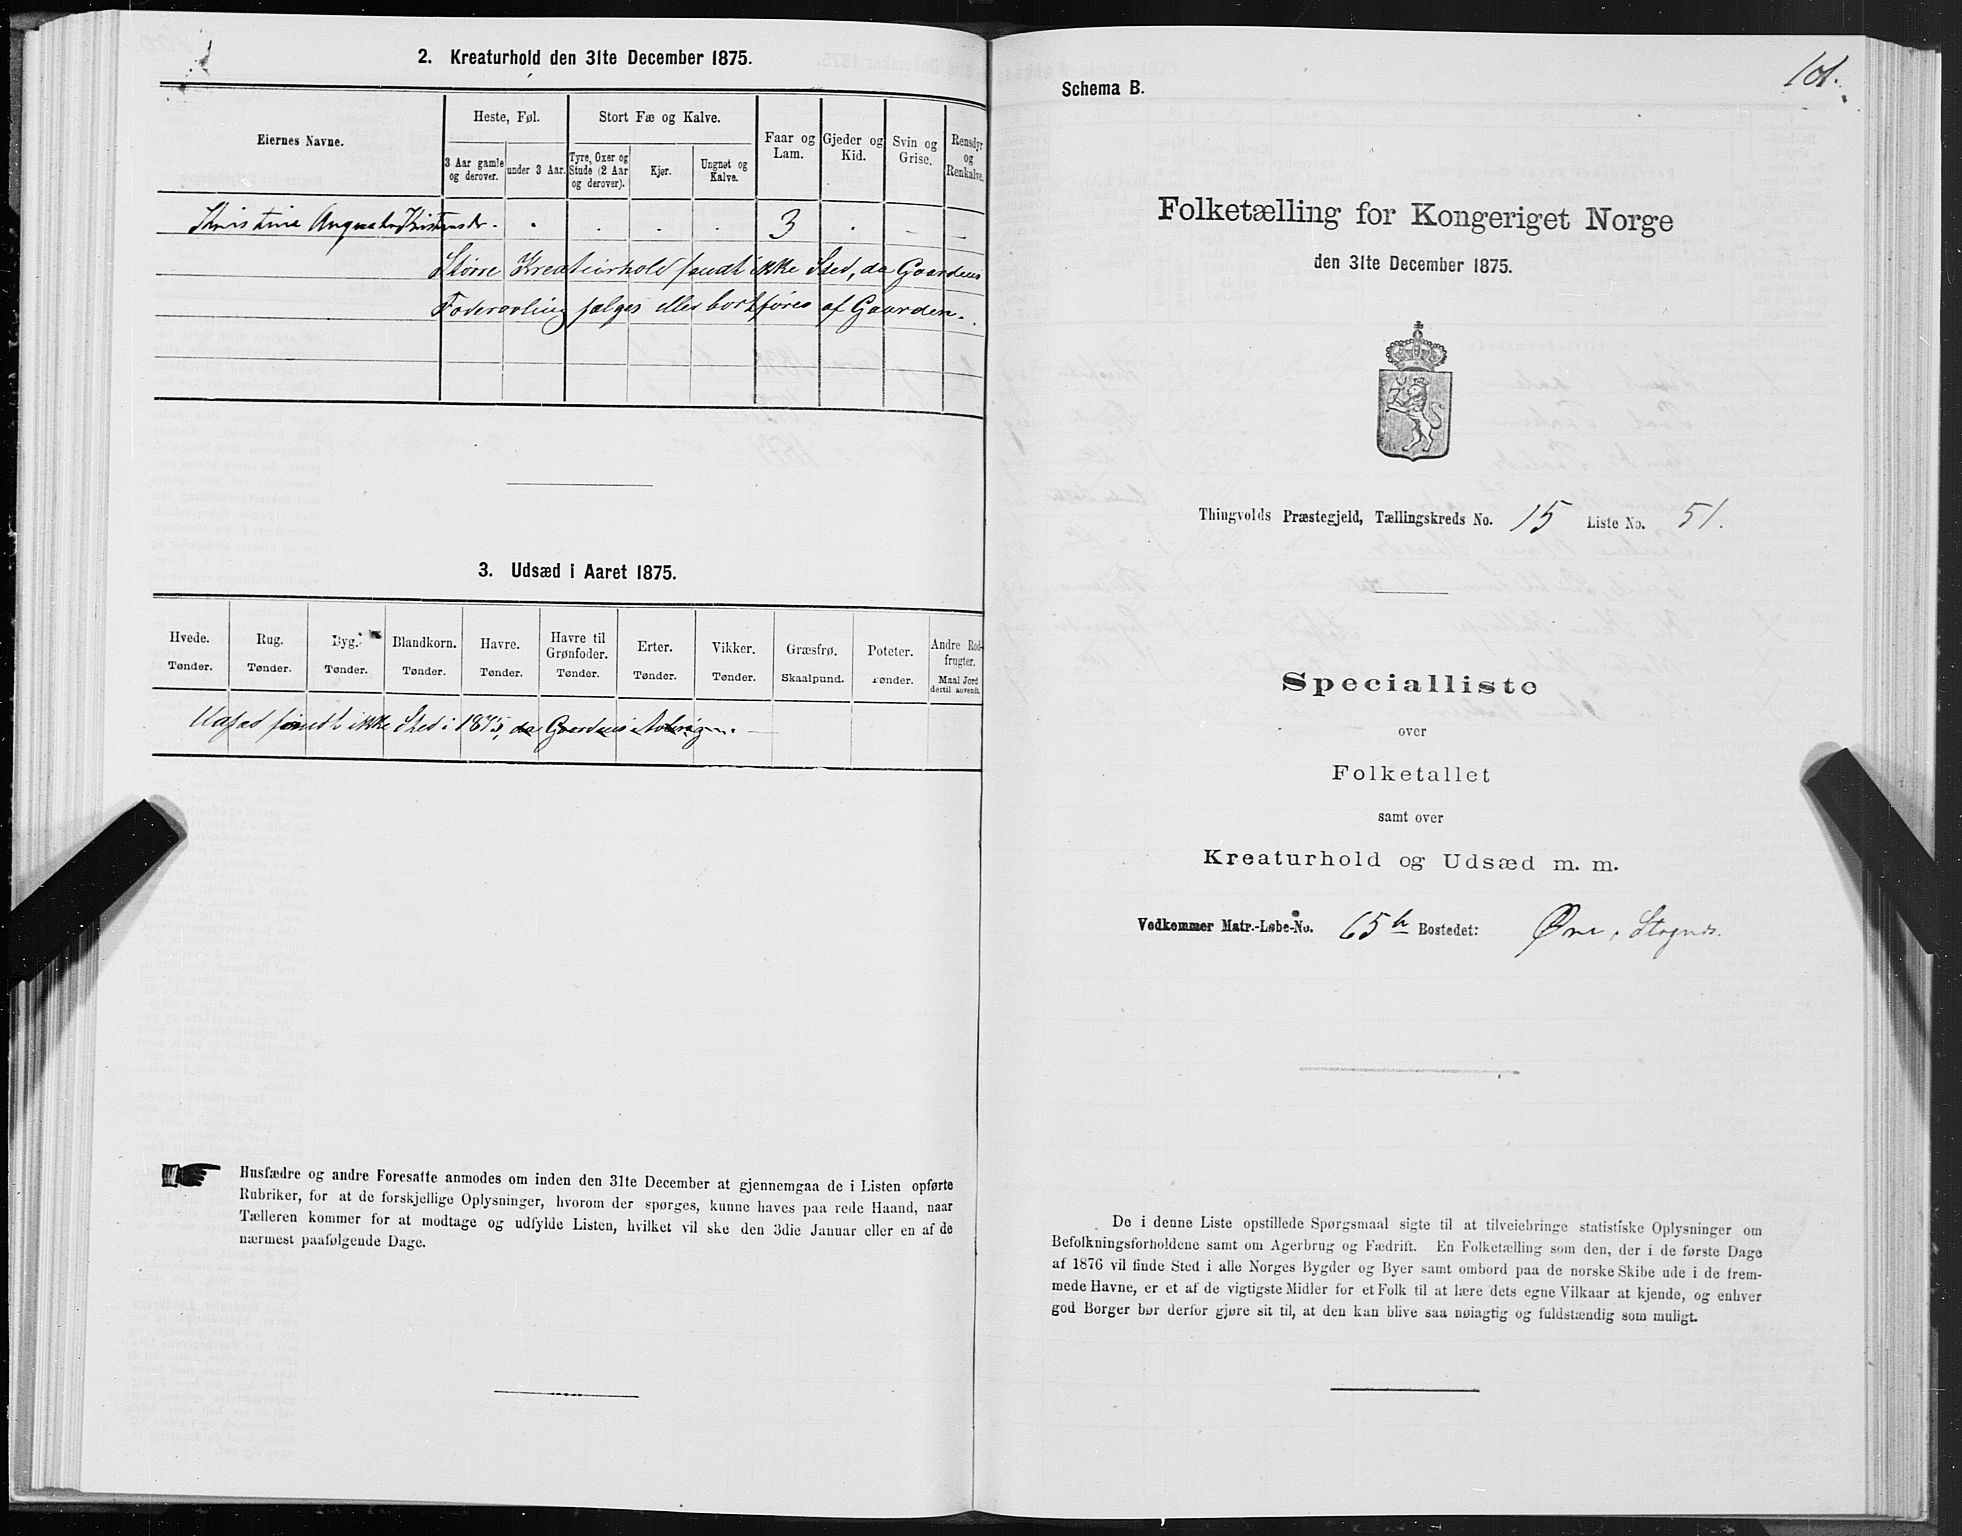 2. Kreaturhold den 31te December 1875.
Eiernes Navne.
Heste, Føl.
Stort Fæ og Kalve.
3 Aar gamle og derover.
under 3 Aar.
Tyre, Oxer og Stude (2 Aar og derover).
Kjør.
Ungnøt og Kalve.
Faar og Lam.
Gjeder og Kid.
Svin og Grise.
Rensdyr og Renkalve.
Christine Angnate Kristensdr. . . . . 3 . — —
Større Kreaturhold fandt ikke Sted, da Gaardens
Foderavling sælges eller bortføres af Gaarden.
3. Udsæd i Aaret 1875.
Hvede. Tønder.
Rug. Tønder.
Byg. Tønder.
Blandkorn. Tønder.
Havre. Tønder.
Havre til Grønfoder. Tønder.
Erter. Tønder.
Vikker. Tønder.
Græsfrø. Skaalpund.
Poteter. Tønder.
Andre Rodfrugter. Maal Jord dertil anvendt.
Udsæd fandt ikke Sted i 1875, da Gaardens
Husfædre og andre Foresatte anmodes om inden den 31te December at gjennemgaa de i Listen opførte
Rubriker, for at de forskjellige Oplysninger, hvorom der spørges, kunne haves paa rede Haand, naar
Tælleren kommer for at modtage og udfylde Listen, hvilket vil ske den 3die Januar eller en af de
nærmest paafølgende Dage.
101.
Schema B.
Folketælling for Kongeriget Norge
den 31te December 1875.
Thingvolds Præstegjeld, Tællingskreds No. 15 Liste No. 51.
Specialliste
over
Folketallet
samt over
Kreaturhold og Udsæd m. m.
Vedkommer Matr.-Løbe-No. 65 h Bostedet: Øre, Stognæs.
De i denne Liste opstillede Spørgsmaal sigte til at tilveiebringe statistiske Oplysninger om
Befolkningsforholdene samt om Agerbrug og Fædrift. En Folketælling som den, der i de første Dage
af 1876 vil finde Sted i alle Norges Bygder og Byer samt ombord paa de norske Skibe ude i de frem-
mede Havne, er et af de vigtigste Midler for et Folk til at lære dets egne Vilkaar at kjende, og enhver
god Borger bør derfor gjøre sit til, at den kan blive saa nøiagtig og fuldstændig som muligt.